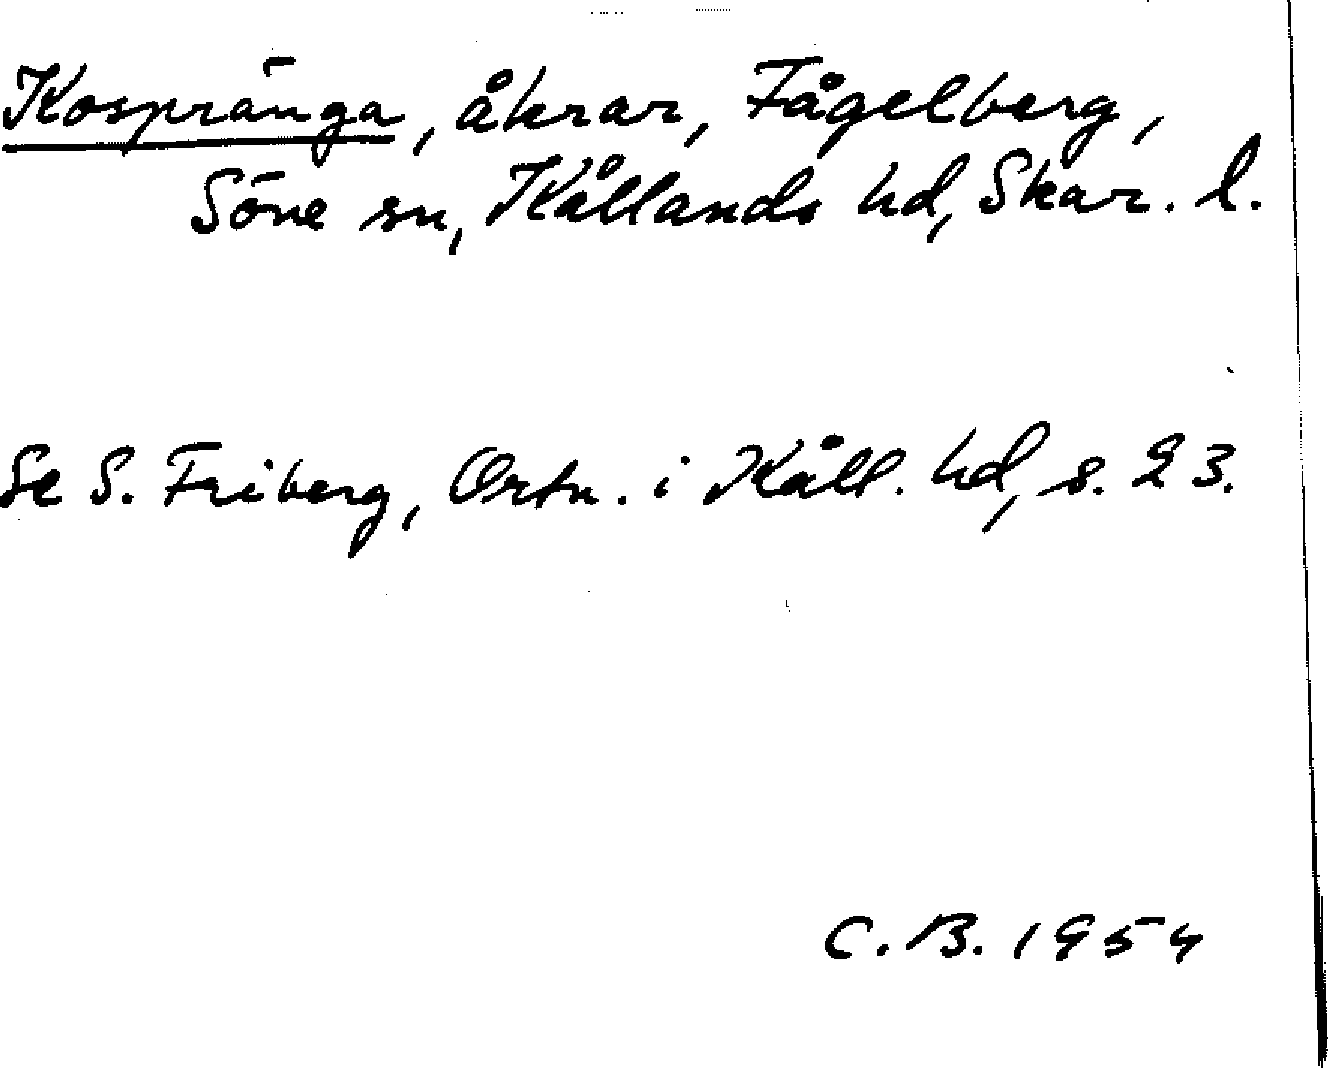 Kospränga, åkrar, Fågelberg,
Söne sn, Kållands hd, Skar. l.
Se S. Friberg, Ortn. i Kåll. hd, s. 23.
C. B. 1954